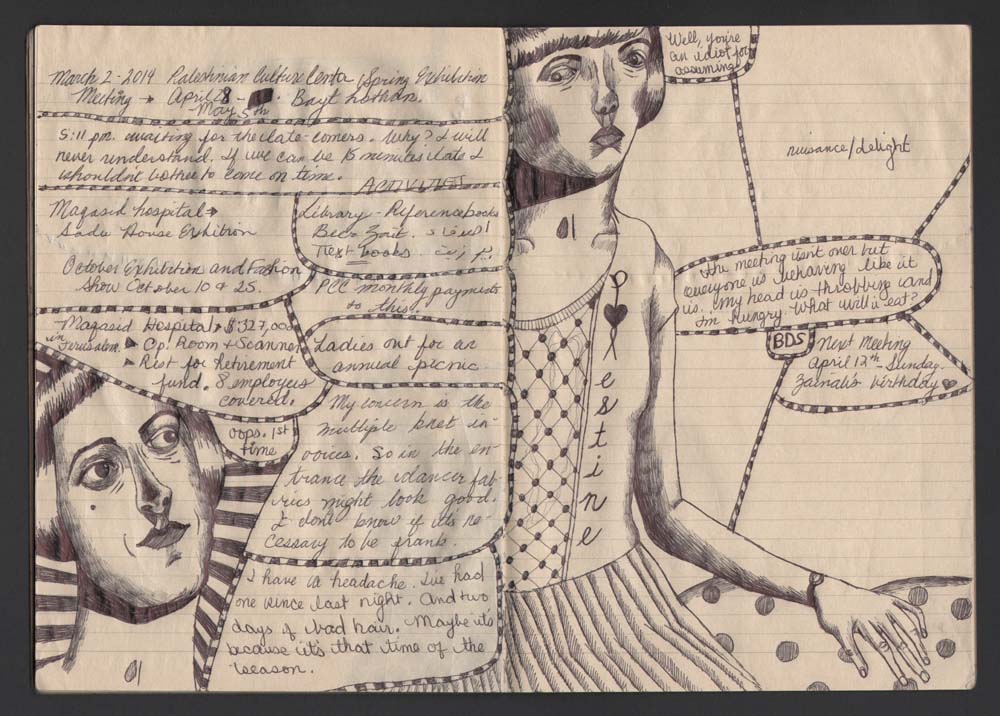 March 2-2014 Palestinian Culture Centa Spring Exhibition
Meeting → April 28 - . Bayt Lothan.
May 5th
5:11 pm. awaiting for the late-comers. Why? I will
never understand. If we can be 15 minutes late I
shouldn't bother to come on time.
Magasid hospital→
Sadu House Exhibition
October Exhibition and Fashion
Show October 10 & 25.
Magasid Hospital → $327,000
in Jerusalem. ▸ Op. Room + Scanner
▸ Rest for Retirement
fund. 8 employees
covered.
Library - Reference books
Text books.
PCC monthly payments
to this.
Ladies out for an
annual picnic.
oops. 1st
time
My concern is the
multiple knet in-
voices. So in the en-
trance the dancer fab-
rics might look good.
I don't know if it's ne-
cessary to be frank.
I have a headache. I've had
one since last night. And two
days of bad hair. Maybe it's
because it's that time of the
season.
Well, you're
an idiot for
assuming
nuisance/delight
Palestine
the meeting isn't over but
everyone is behaving like it
is. My head is throbbing and
I'm hungry. What will I eat?
BDS
Next Meeting
April 12th - Sunday.
Zainab's birthday ♥